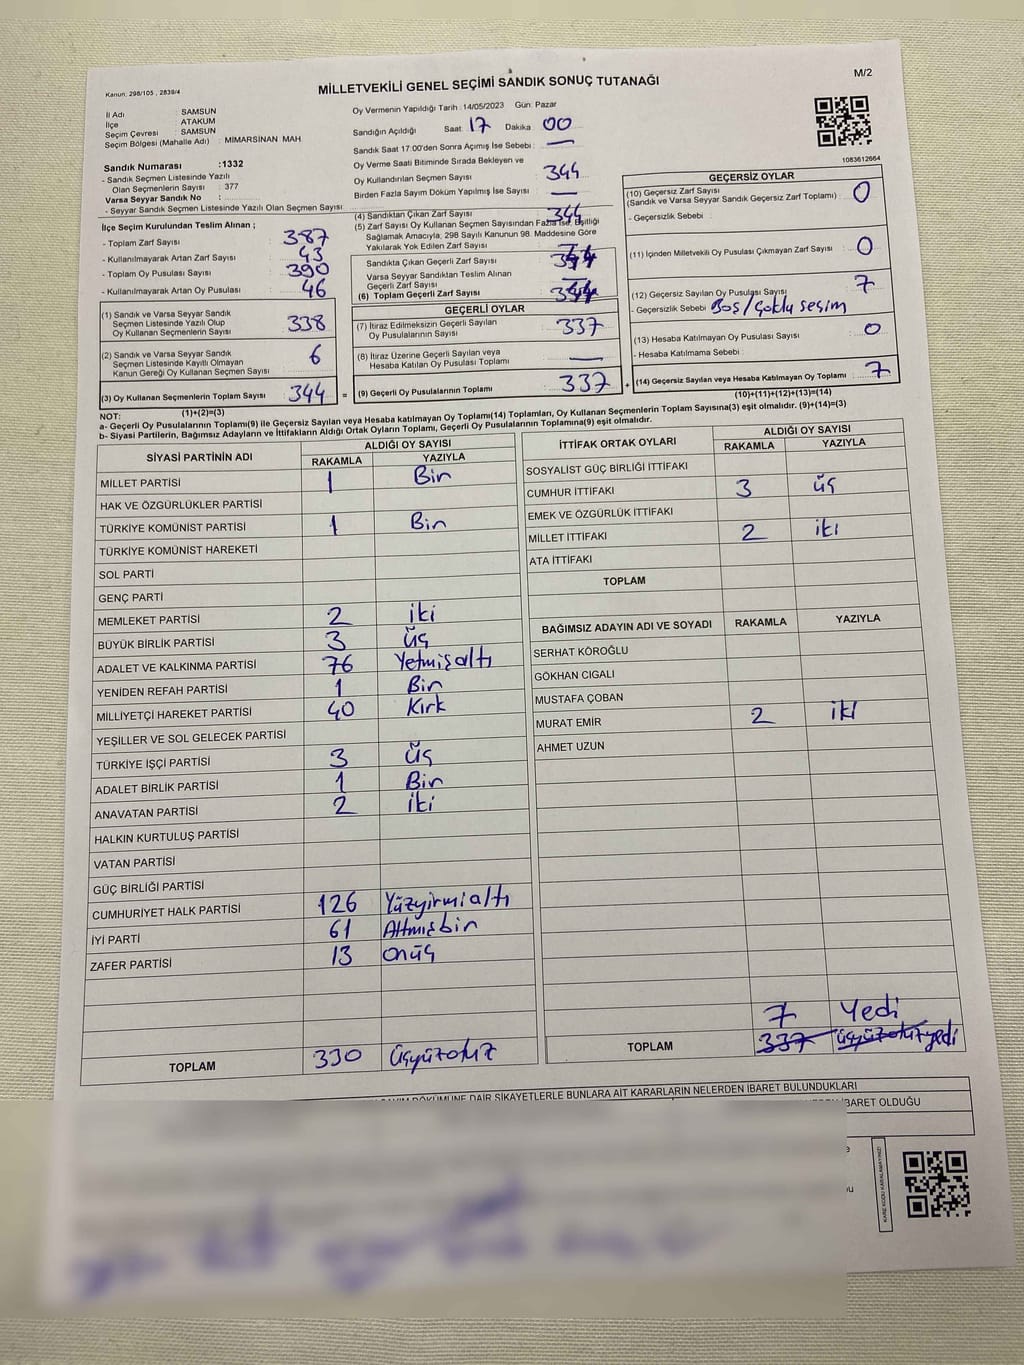 M/2
Kanun: 298/105 , 2839/4
MİLLETVEKİLİ GENEL SEÇİMİ SANDIK SONUÇ TUTANAĞI
İl Adı : SAMSUN
İlçe : ATAKUM
Seçim Çevresi : SAMSUN
Seçim Bölgesi (Mahalle Adı) : MİMARSİNAN MAH
Sandık Numarası :1332
- Sandık Seçmen Listesinde Yazılı
Olan Seçmenlerin Sayısı : 377
Varsa Seyyar Sandık No :
- Seyyar Sandık Seçmen Listesinde Yazılı Olan Seçmen Sayısı:
Oy Vermenin Yapıldığı Tarih : 14/05/2023 Gün: Pazar
Sandığın Açıldığı Saat: 17 Dakika: 00
Sandık Saat 17.00'den Sonra Açımış İse Sebebi : —
Oy Verme Saati Bitiminde Sırada Bekleyen ve
Oy Kullandırılan Seçmen Sayısı : 344
Birden Fazla Sayım Döküm Yapılmış İse Sayısı : —
1083612664
İlçe Seçim Kurulundan Teslim Alınan ;
- Toplam Zarf Sayısı : 387
- Kullanılmayarak Artan Zarf Sayısı : 43
- Toplam Oy Pusulası Sayısı : 390
- Kullanılmayarak Artan Oy Pusulası : 46
(1) Sandık ve Varsa Seyyar Sandık
Seçmen Listesinde Yazılı Olup
Oy Kullanan Seçmenlerin Sayısı : 338
(2) Sandık ve Varsa Seyyar Sandık
Seçmen Listesinde Kayıtlı Olmayan
Kanun Gereği Oy Kullanan Seçmen Sayısı : 6
(3) Oy Kullanan Seçmenlerin Toplam Sayısı : 344 =
(1)+(2)=(3)
(4) Sandıktan Çıkan Zarf Sayısı : 344
(5) Zarf Sayısı Oy Kullanan Seçmen Sayısından Fazla İse, Eşitliği
Sağlamak Amacıyla, 298 Sayılı Kanunun 98. Maddesine Göre
Yakılarak Yok Edilen Zarf Sayısı : —
Sandıkta Çıkan Geçerli Zarf Sayısı : 344
Varsa Seyyar Sandıktan Teslim Alınan
Geçerli Zarf Sayısı : —
(6) Toplam Geçerli Zarf Sayısı : 344
GEÇERLİ OYLAR
(7) İtiraz Edilmeksizin Geçerli Sayılan
Oy Pusulalarının Sayısı : 337
(8) İtiraz Üzerine Geçerli Sayılan veya
Hesaba Katılan Oy Pusulası Toplamı : —
(9) Geçerli Oy Pusulalarının Toplamı : 337 +
GEÇERSİZ OYLAR
(10) Geçersiz Zarf Sayısı
(Sandık ve Varsa Seyyar Sandık Geçersiz Zarf Toplamı) : 0
- Geçersizlik Sebebi :
(11) İçinden Milletvekili Oy Pusulası Çıkmayan Zarf Sayısı : 0
(12) Geçersiz Sayılan Oy Pusulası Sayısı : 7
- Geçersizlik Sebebi : Boş / Çoklu seçim
(13) Hesaba Katılmayan Oy Pusulası Sayısı : 0
- Hesaba Katılmama Sebebi :
(14) Geçersiz Sayılan veya Hesaba Katılmayan Oy Toplamı : 7
(10)+(11)+(12)+(13)=(14)
NOT:
a- Geçerli Oy Pusulalarının Toplamı(9) ile Geçersiz Sayılan veya Hesaba katılmayan Oy Toplamı(14) Toplamları, Oy Kullanan Seçmenlerin Toplam Sayısına(3) eşit olmalıdır. (9)+(14)=(3)
b- Siyasi Partilerin, Bağımsız Adayların ve İttifakların Aldığı Ortak Oyların Toplamı, Geçerli Oy Pusulalarının Toplamına(9) eşit olmalıdır.
SİYASİ PARTİNİN ADI ALDIĞI OY SAYISI
RAKAMLA YAZIYLA
MİLLET PARTİSİ 1 Bir
HAK VE ÖZGÜRLÜKLER PARTİSİ
TÜRKİYE KOMÜNİST PARTİSİ 1 Bir
TÜRKİYE KOMÜNİST HAREKETİ
SOL PARTİ
GENÇ PARTİ
MEMLEKET PARTİSİ 2 iki
BÜYÜK BİRLİK PARTİSİ 3 üç
ADALET VE KALKINMA PARTİSİ 76 Yetmişaltı
YENİDEN REFAH PARTİSİ 1 Bir
MİLLİYETÇİ HAREKET PARTİSİ 40 Kırk
YEŞİLLER VE SOL GELECEK PARTİSİ
TÜRKİYE İŞÇİ PARTİSİ 3 üç
ADALET BİRLİK PARTİSİ 1 Bir
ANAVATAN PARTİSİ 2 iki
HALKIN KURTULUŞ PARTİSİ
VATAN PARTİSİ
GÜÇ BİRLİĞİ PARTİSİ
CUMHURİYET HALK PARTİSİ 126 Yüzyirmialtı
İYİ PARTİ 61 Altmışbir
ZAFER PARTİSİ 13 onüç
TOPLAM 330 üçyüzotuz
İTTİFAK ORTAK OYLARI ALDIĞI OY SAYISI
RAKAMLA YAZIYLA
SOSYALİST GÜÇ BİRLİĞİ İTTİFAKI
CUMHUR İTTİFAKI 3 üç
EMEK VE ÖZGÜRLÜK İTTİFAKI
MİLLET İTTİFAKI 2 iki
ATA İTTİFAKI
TOPLAM
BAĞIMSIZ ADAYIN ADI VE SOYADI RAKAMLA YAZIYLA
SERHAT KÖROĞLU
GÖKHAN CIGALI
MUSTAFA ÇOBAN
MURAT EMİR 2 iki
AHMET UZUN
7 Yedi
TOPLAM 337 üçyüzotuzyedi
DÖKÜMÜNE DAİR ŞİKAYETLERLE BUNLARA AİT KARARLARIN NELERDEN İBARET BULUNDUKLARI
İBARET OLDUĞU
KARE KODU KARALAMAYINIZ!